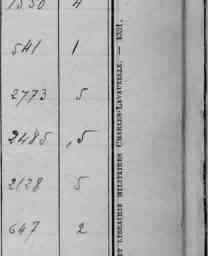 1330 4
541 1
2773 5
2485 , 5
2128 5
647 2
ET LIBRAIRIE MILITAIRES CHARLES-LAVAUZELLE. — 4331.